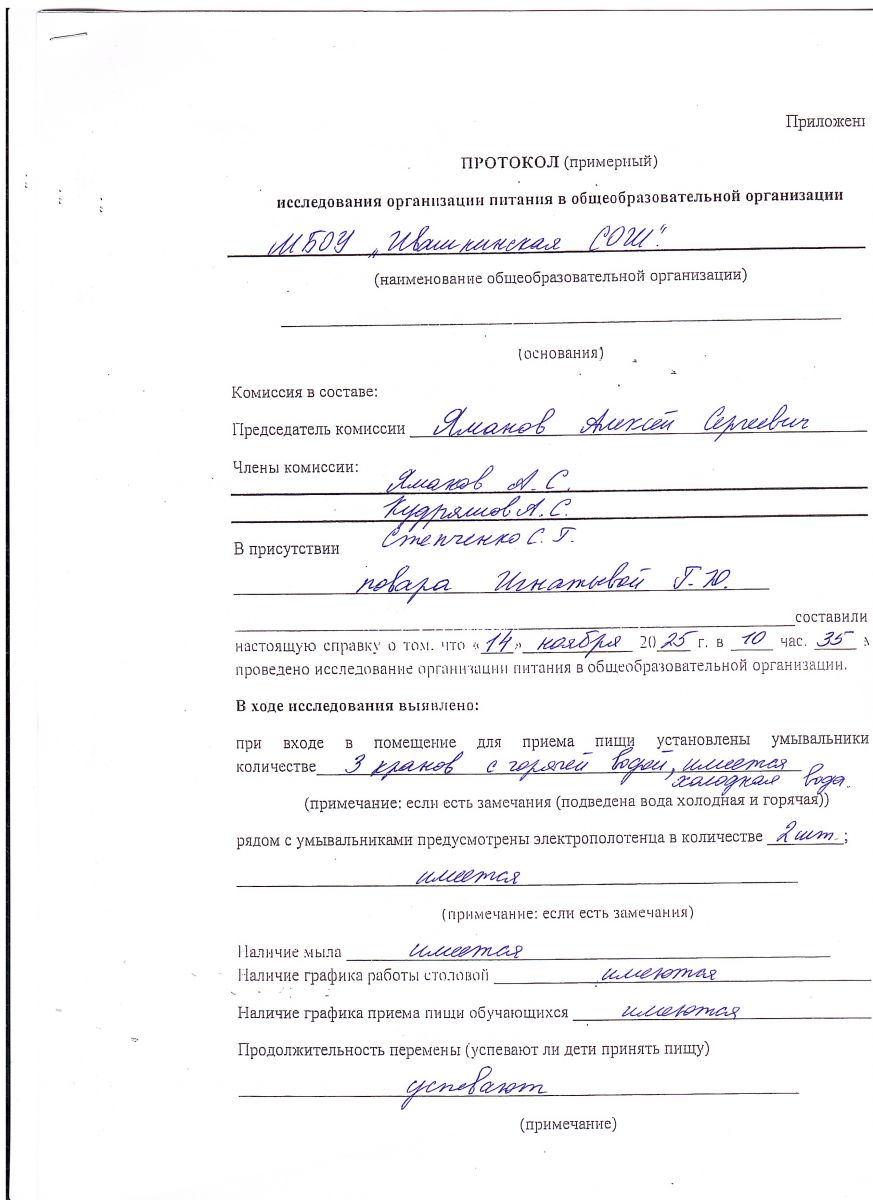 Приложени
ПРОТОКОЛ (примерный)
исследования организации питания в общеобразовательной организации
МБОУ „Ивашкинская СОШ".
(наименование общеобразовательной организации)
(основания)
Комиссия в составе:
Председатель комиссии Яманов Алексей Сергеевич
Члены комиссии:
Яманов А. С.
Кудряшов А. С.
Степченко С. Г.
В присутствии
повара Игнатьевой Г. Ю.
составили
настоящую справку о том, что «14» ноября 2025 г. в 10 час. 35 м
проведено исследование организации питания в общеобразовательной организации.
В ходе исследования выявлено:
при входе в помещение для приема пищи установлены умывальники
количестве 3 кранов с горячей водой, имеется
холодная вода.
(примечание: если есть замечания (подведена вода холодная и горячая))
рядом с умывальниками предусмотрены электрополотенца в количестве 2 шт.;
имеется
(примечание: если есть замечания)
Наличие мыла имеется
Наличие графика работы столовой имеются
Наличие графика приема пищи обучающихся имеются
Продолжительность перемены (успевают ли дети принять пищу)
успевают
(примечание)